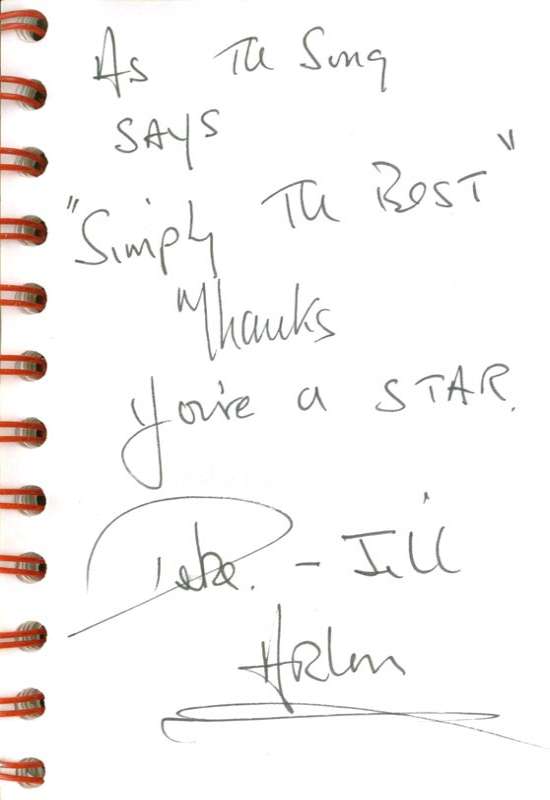 As The Song
SAYS
"Simply The BEST"
Thanks
You're a STAR.
Pete. - Jill